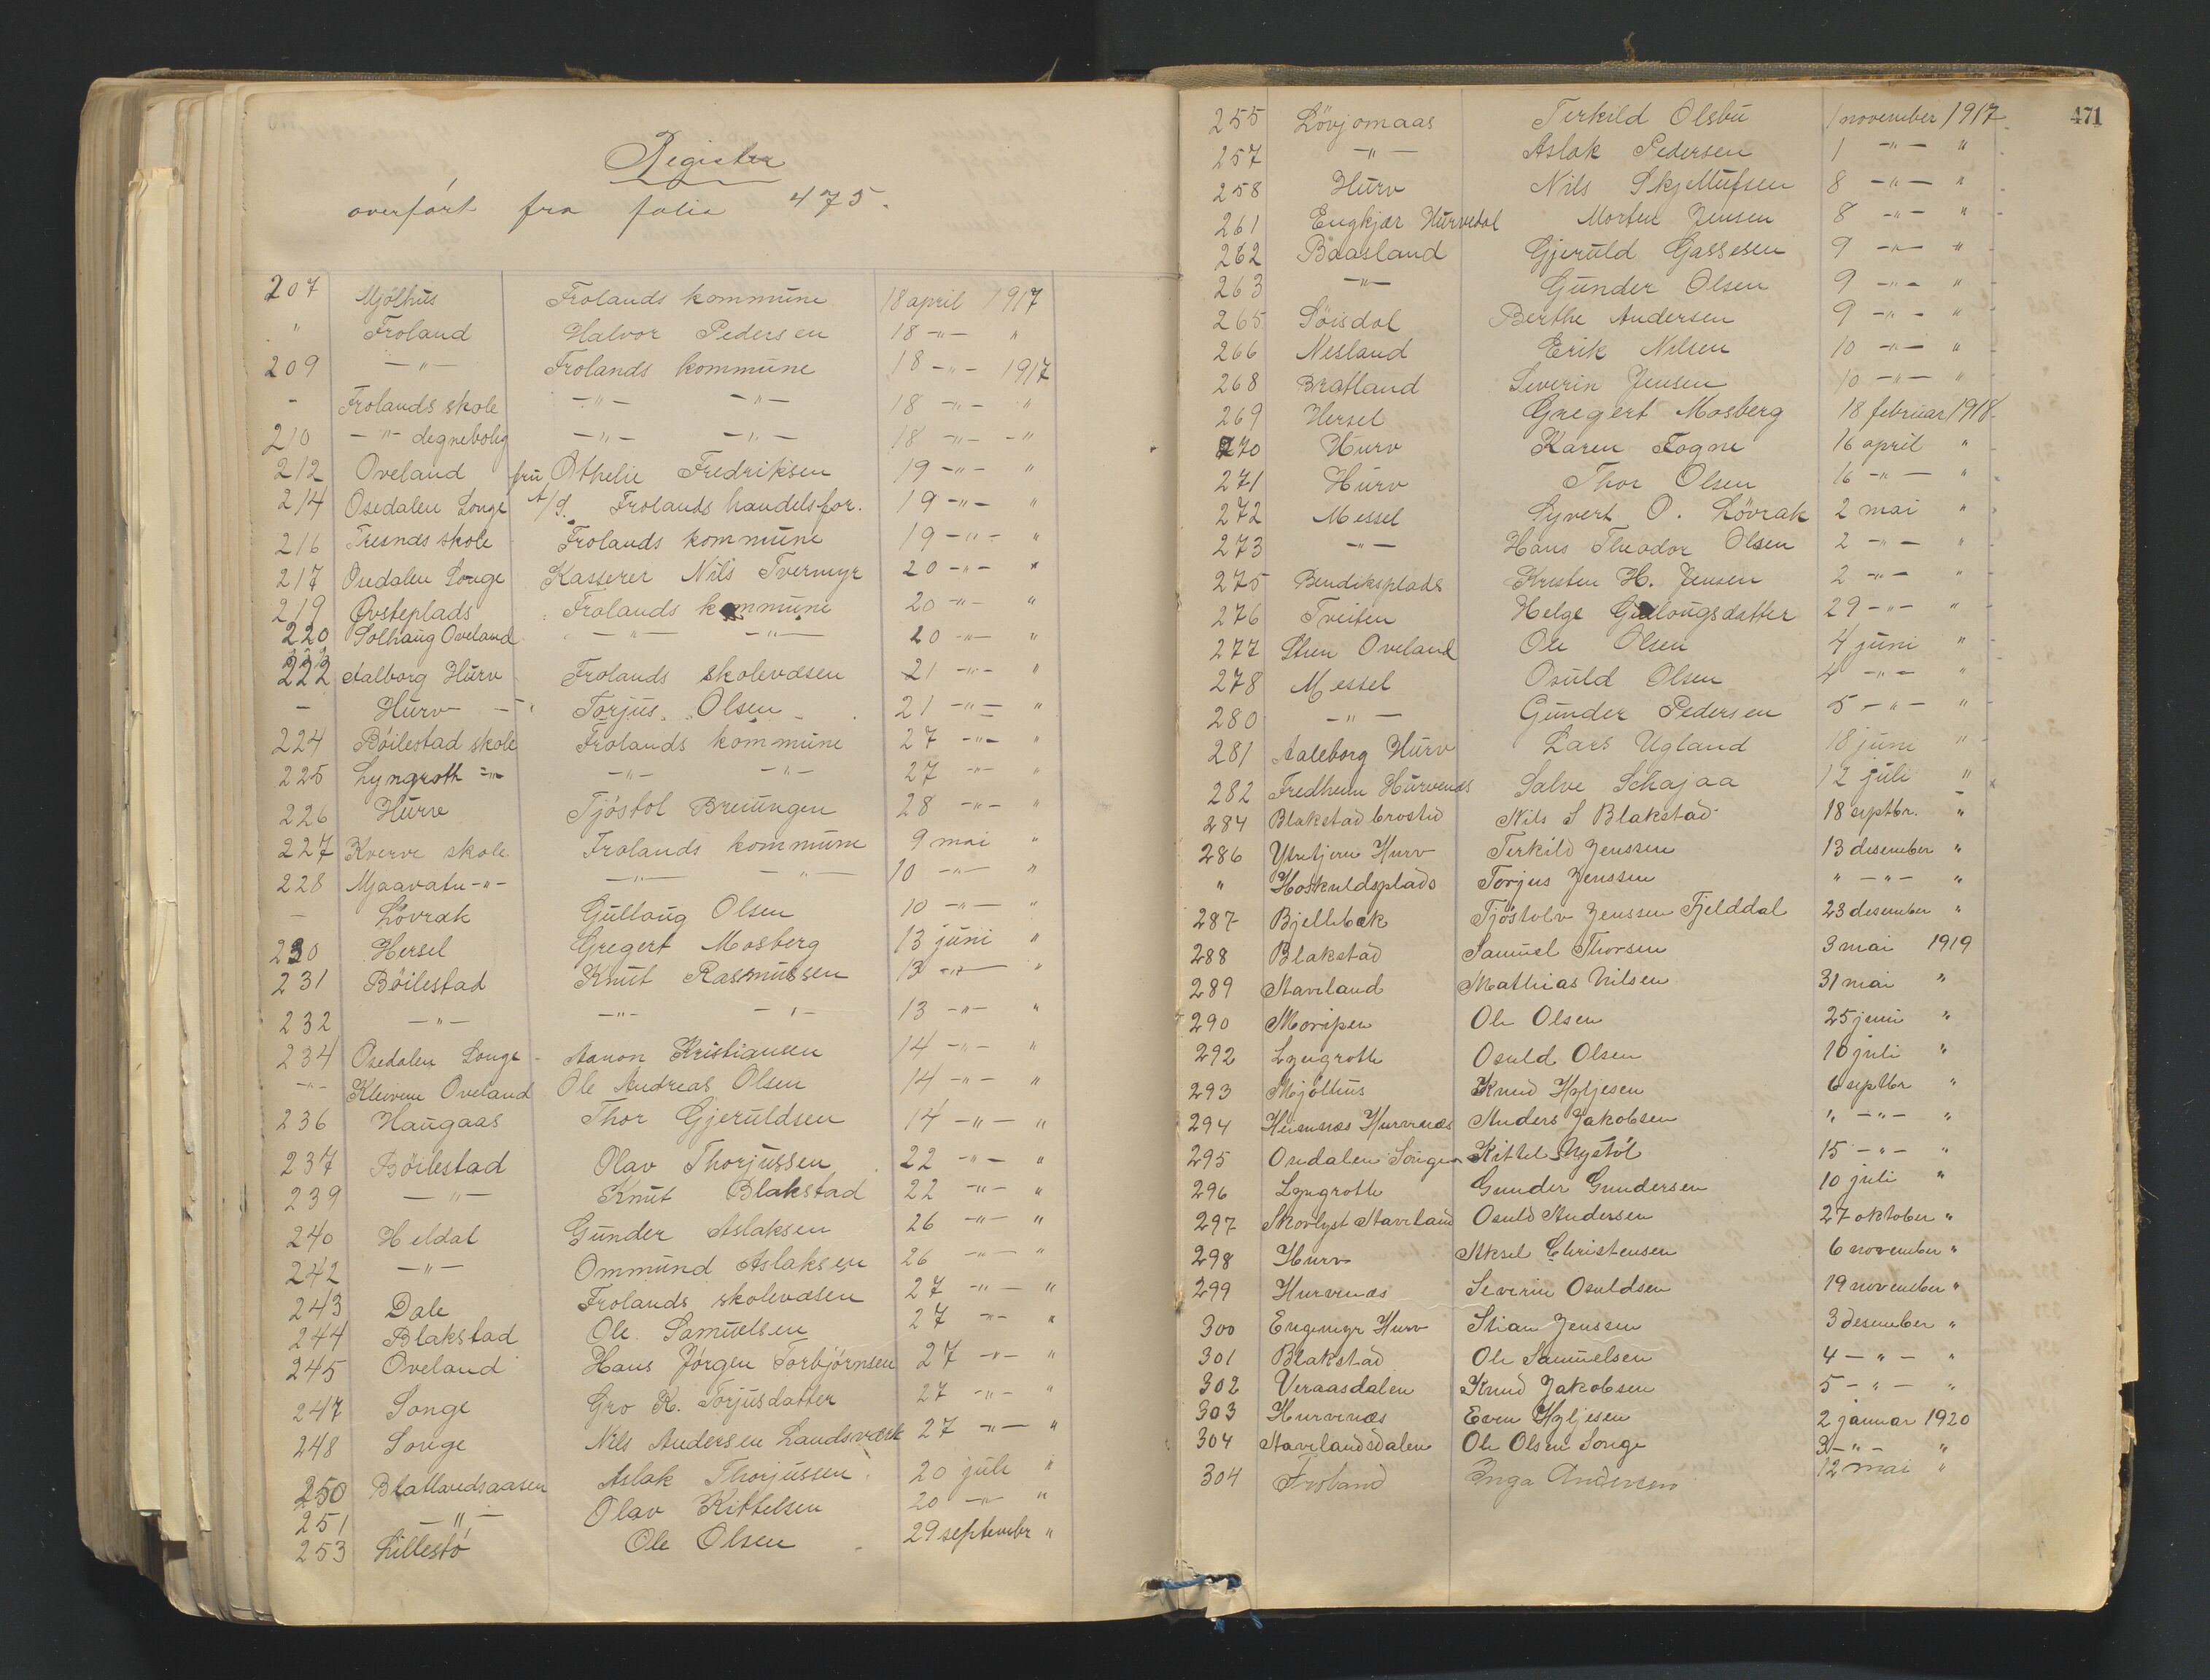 Register
overført fra folio 475.
207 Mjölhus Frolands kommune 18 april 1917
" Froland Halvor Pedersen 18 -"- "
209 -"- Frolands kommune 18 -"- 1917
- Frolands skole -"- -"- 18 -"- "
210 -"- degnebolig -"- -"- 18 -"- "
212 Oveland fru Othelie Fredriksen 19 -"- "
214 Osedalen Songe A/S. Frolands handelsfor. 19 -"- "
216 Tresnæs skole Frolands kommune 19 -"- "
217 Osedalen Songe Kasserer Nils Tvermyr 20 -"- "
219 Øvsteplads Frolands kommune 20 -"- "
220 Solhaug Oveland -"- -"- 20 -"- "
222 Aalborg Hurv Frolands skolevæsen 21 -"- "
- Hurv -"- Torjus Olsen 21 -"- "
224 Böilestad skole Frolands kommune 27 -"- "
225 Lyngroth -"- -"- -"- 27 -"- "
226 Hurv Tjöstol Breiungen 28 -"- "
227 Kverve skole Frolands kommune 9 mai "
228 Mjaavatn -"- -"- -"- 10 -"- "
- Lövrak Gullaug Olsen 10 -"- "
230 Hersel Gregert Mosberg 13 juni "
231 Böilestad Knut Rasmussen 13 -"- "
232 -"- -"- -"- 13 -"- "
234 Osedalen Songe Aanon Kristiansen 14 -"- "
-"- Kleivene Oveland Ole Andreas Olsen 14 -"- "
236 Haugaas Thor Gjeruldsen 14 -"- "
237 Böilestad Olav Thorjussen 22 -"- "
239 -"- Knut Blakstad 22 -"- "
240 Heldal Gunder Aslaksen 26 -"- "
242 -"- Ommund Aslaksen 26 -"- "
243 Dale Frolands skolevæsen 27 -"- "
244 Blakstad Ole Samuelsen 27 -"- "
245 Oveland Hans Jörgen Torbjörnsen 27 -"- "
247 Songe Gro K. Torjusdatter 27 -"- "
248 Songe Nils Andersen Landsværk 27 -"- "
250 Blatlandsaasen Aslak Thorjussen 20 juli "
251 -"- Olav Kittelsen 20 -"- "
253 Lillestö Ole Olsen 29 septembr "
471
255 Lövjomaas Terkild Olsbu 1 november 1917
257 -"- Aslak Pedersen 1 -"- "
258 Hurv Nils Skjellufsen 8 -"- "
261 Engkjær Hurvedal Morten Jensen 8 -"- "
262 Baasland Gjeruld Gassesen 9 -"- "
263 -"- Gunder Olsen 9 -"- "
265 Söisdal Berthe Andersen 9 -"- "
266 Nesland Erik Nilsen 10 -"- "
268 Bratland Severin Jensen 10 -"- "
269 Hersel Gregert Mosberg 18 februar 1918
270 Hurv Karen Fogne 16 april "
271 Hurv Thor Olsen 16 -"- "
272 Messel Syvert O. Lövrak 2 mai "
273 -"- Hans Theodor Olsen 2 -"- "
275 Bendiksplads Kristen H. Jensen 2 -"- "
276 Tveiten Helge Gullougsdatter 29 -"- "
277 Stien Oveland Ole Olsen 4 juni "
278 Messel Osuld Olsen 4 -"- "
280 -"- Gunder Pedersen 5 -"- "
281 Aaleborg Hurv Lars Ugland 18 juni "
282 Fredheim Hurvenæs Salve Schajaa 12 juli "
284 Blakstad brosted Nils S Blakstad 18 septbr. "
286 Ytretjern Hurv Terkild Jenssen 13 desember "
" Hoskuldsplads Torjus Jenssen " -"- "
287 Bjellebæk Tjöstolv Jenssen Fjelddal 23 desember "
288 Blakstad Samuel Thorsen 3 mai 1919
289 Staveland Mathias Nilsen 31 mai "
290 Moripen Ole Olsen 25 juni "
292 Lyngroth Osuld Olsen 10 juli "
293 Mjölhus Knud Hyljesen 6 septbr "
294 Heimnæs Hurvenæs Anders Jakobsen " -"- "
295 Osedalen Songe Kittel Nystöl 15 -"- "
296 Lyngroth Gunder Gundersen 10 juli "
297 Skovlyst Staveland Osuld Andersen 27 oktober "
298 Hurv Aksel Christensen 6 november "
299 Hurvenæs Severin Osuldsen 19 november "
300 Engemyr Hurv Stian Jenssen 3 desember "
301 Blakstad Ole Samuelsen 4 -"- "
302 Veraasdalen Knud Jakobsen 5 -"- "
303 Hurvenæs Even Hyljesen 2 januar 1920
304 Stavelandsdalen Ole Olsen Songe 3 -"- "
304 Froland Inga Andersen 12 mai "